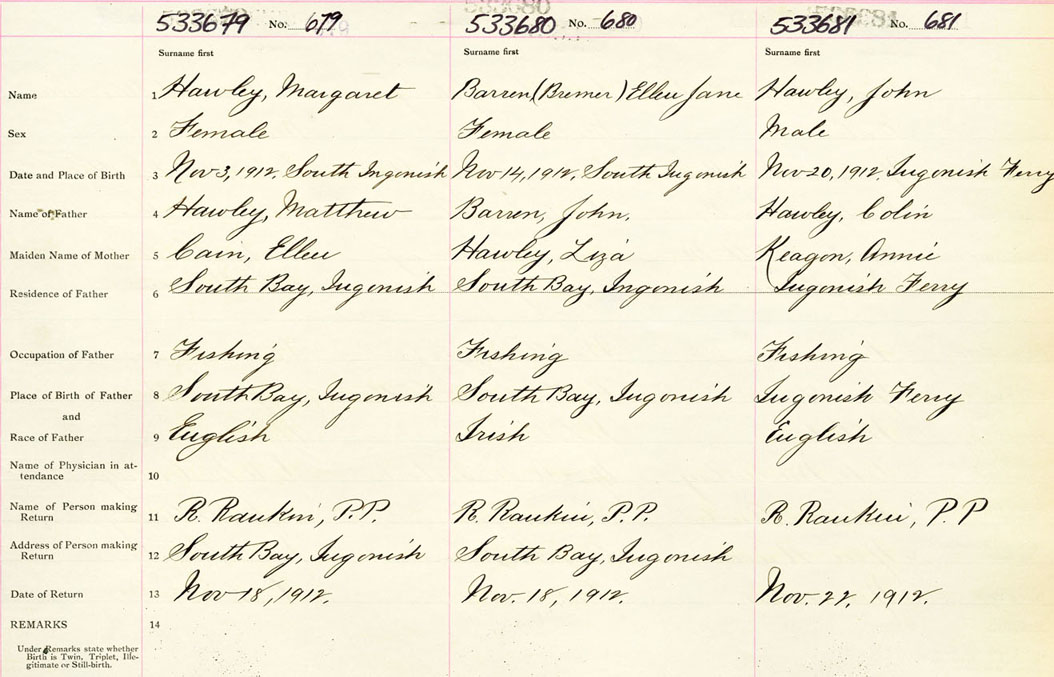 533679 No. 679 533680 No. 680 533681 No. 681
Surname first Surname first Surname first
Name 1 Hawley, Margaret Barren (Bremer) Ellen Jane Hawley, John
Sex 2 Female Female Male
Date and Place of Birth 3 Nov 3, 1912. South Ingonish Nov 14, 1912. South Ingonish Nov 20, 1912. Ingonish Ferry
Name of Father 4 Hawley, Matthew Barren, John. Hawley, Colin
Maiden Name of Mother 5 Cain, Ellen Hawley, Liza Keagon, Annie
Residence of Father 6 South Bay, Ingonish South Bay, Ingonish Ingonish Ferry
Occupation of Father 7 Fishing Fishing Fishing
Place of Birth of Father 8 South Bay, Ingonish South Bay, Ingonish Ingonish Ferry
and
Race of Father 9 English Irish English
Name of Physician in at-
tendance 10
Name of Person making
Return 11 R. Rankin, P.P. R. Rankin, P.P. R. Rankin, P.P
Address of Person making
Return 12 South Bay, Ingonish South Bay, Ingonish
Date of Return 13 Nov 18, 1912. Nov. 18, 1912. Nov. 22, 1912.
REMARKS 14
Under Remarks state whether
Birth is Twin, Triplet, Ille-
gitimate or Still-birth.